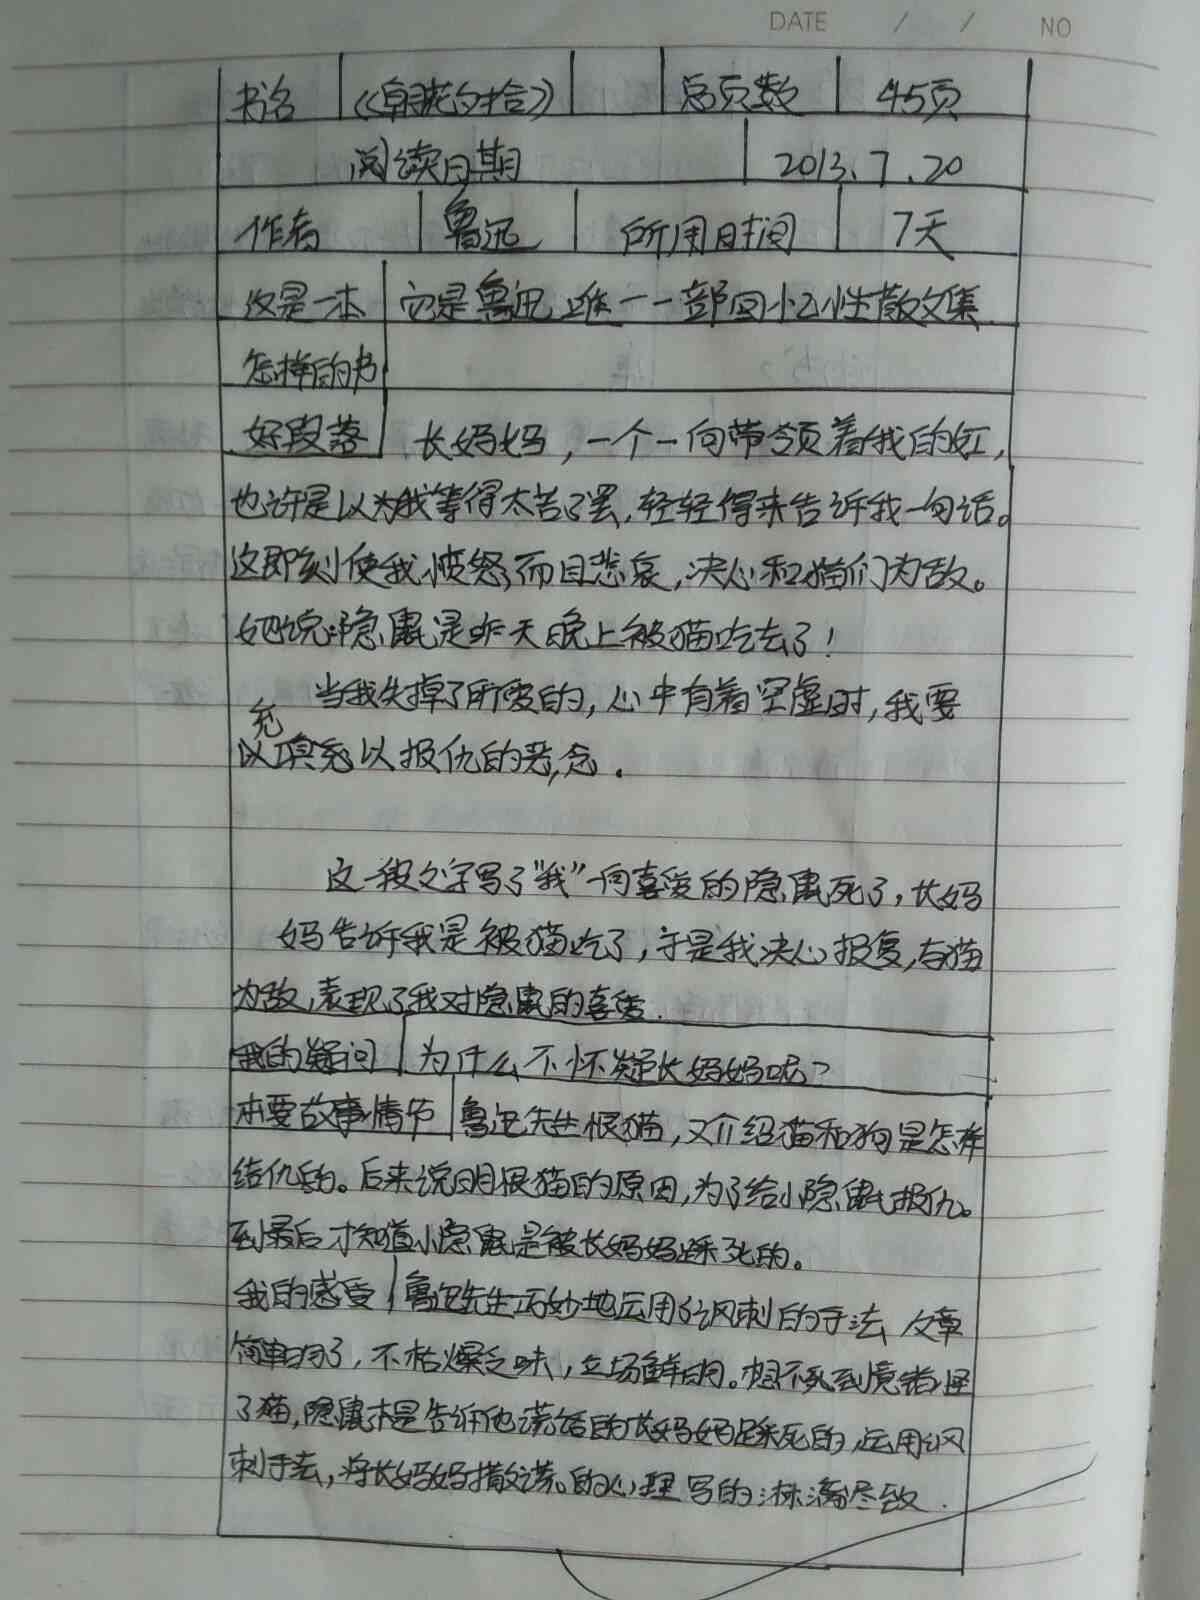 DATE / / NO
书名 《朝花夕拾》 总页数 45页
阅读日期 2013.7.20
作者 鲁迅 所用时间 7天
这是一本 它是鲁迅唯一一部回忆性散文集.
怎样的书
好段落 长妈妈，一个一向带领着我的女工，
也许是以为我等得太苦了罢，轻轻得来告诉我一句话。
这即刻使我愤怒而且悲哀，决心和猫们为敌。
她说:隐鼠是昨天晚上被猫吃去了！
当我失掉了所爱的，心中有着空虚时，我要
充
以填充以报仇的恶念.
这一段文字写了“我”一向喜爱的隐鼠死了，长妈
妈告诉我是被猫吃了，于是我决心报复，与猫
为敌，表现了我对隐鼠的喜爱.
我的疑问 为什么不怀疑长妈妈呢？
本要故事情节 鲁迅先生恨猫，又介绍猫和狗是怎样
结仇的。后来说明恨猫的原因，为了给小隐鼠报仇。
到最后才知道小隐鼠是被长妈妈踩死的。
我的感受 鲁迅先生巧妙地运用了讽刺的手法 文章
简单明了，不枯燥乏味，立场鲜明。想不到竟错怪
了猫，隐鼠是告诉他谎话的长妈妈踩死的，运用讽
刺手法，将长妈妈撒谎的心理写的淋漓尽致.